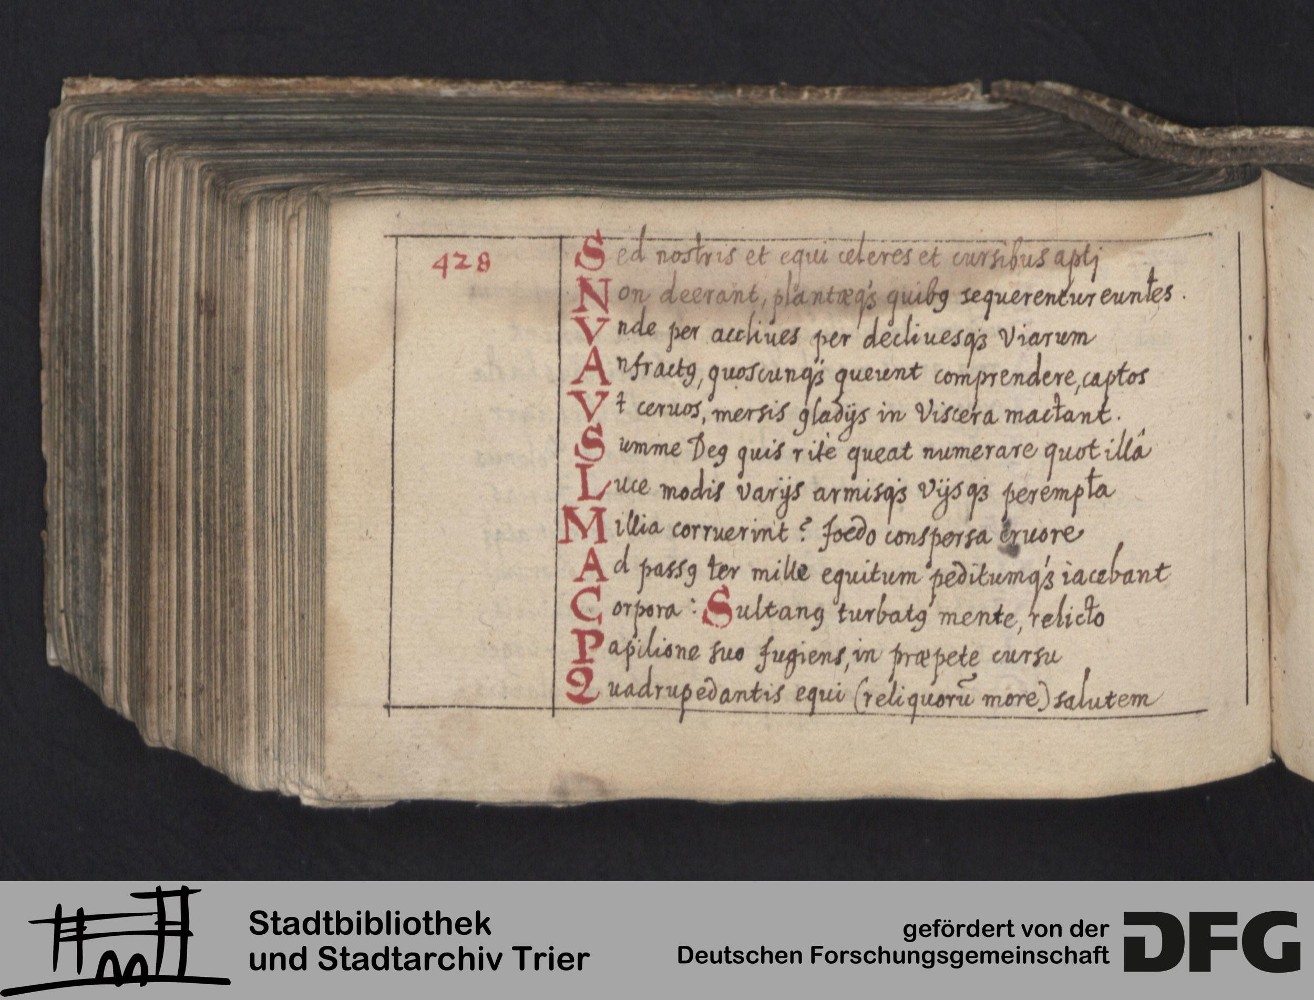 428
Sed nostris et equi celeres et cursibus aptj
Non deerant, plantæqꝫ quibꝰ sequerentur euntes.
Vnde per accliues per decliuesqꝫ viarum
Anfractꝰ, quoscunqꝫ queunt comprendere, captos
Vt ceruos, mersis gladijs in viscera mactant.
Summe Deꝰ quis ritè queat numerare quot illâ
Luce modis varijs armisqꝫ vijsqꝫ perempta
Millia corruerint? foedo conspersa cruore
Ad passꝰ ter mille equitum peditumqꝫ iacebant
Corpora: Sultanꝰ turbatꝰ mente, relicto
Papilione suo fugiens, in præpete cursu
Quadrupedantis equi (reliquorũ more) salutem
Stadtbibliothek
und Stadtarchiv Trier
gefördert von der
Deutschen Forschungsgemeinschaft
DFG